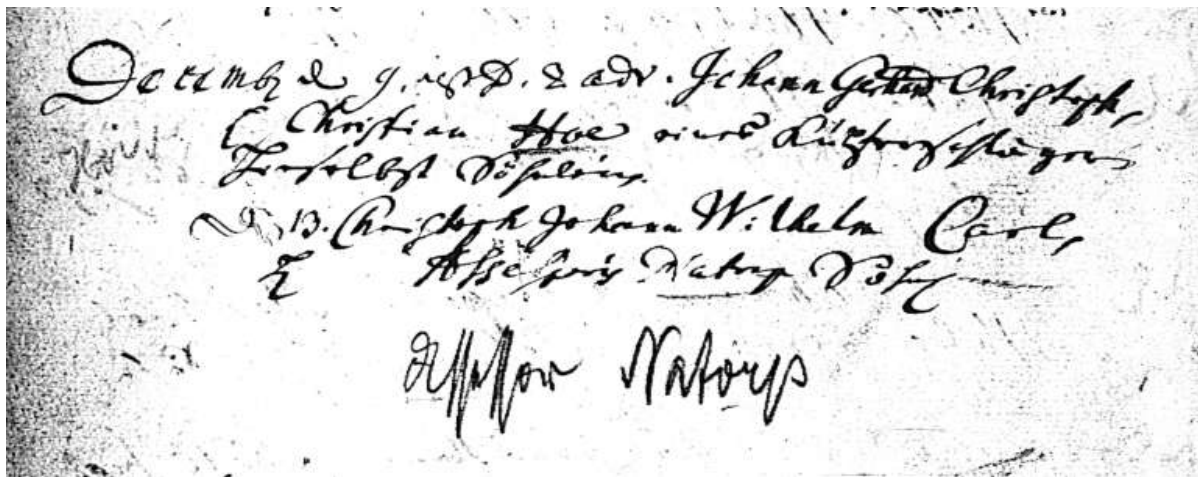 Decemb. d. 9. Dom. 2 adv. Johann Gerhard Christoph,
Christian Hoe eines
hierselbst Söhnlein.
D. 13. Christoph Johann Wilhelm Carl,
Assessoris Natorp Söhnl.
Assessor Natorp